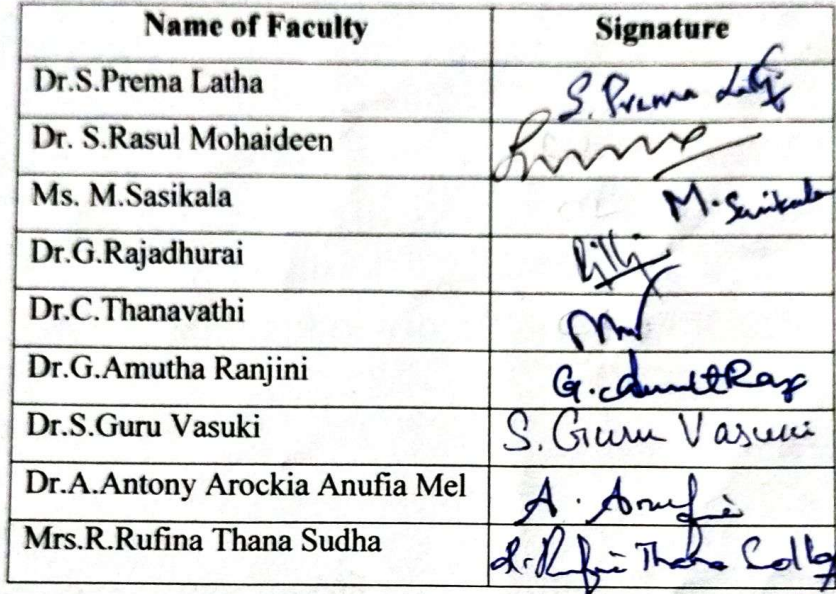 Name of Faculty Signature
Dr.S.Prema Latha S. Prema Lat
Dr. S.Rasul Mohaideen
Ms. M.Sasikala M. Sasikala
Dr.G.Rajadhurai
Dr.C.Thanavathi
Dr.G.Amutha Ranjini G.
Dr.S.Guru Vasuki S. Guru Vasuki
Dr.A.Antony Arockia Anufia Mel A. Anufia
Mrs.R.Rufina Thana Sudha R. Rufina Thana Sudha